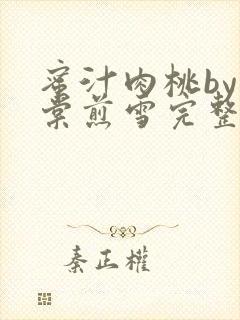 蜜汁肉桃by
棠煎雪完整
秦正权